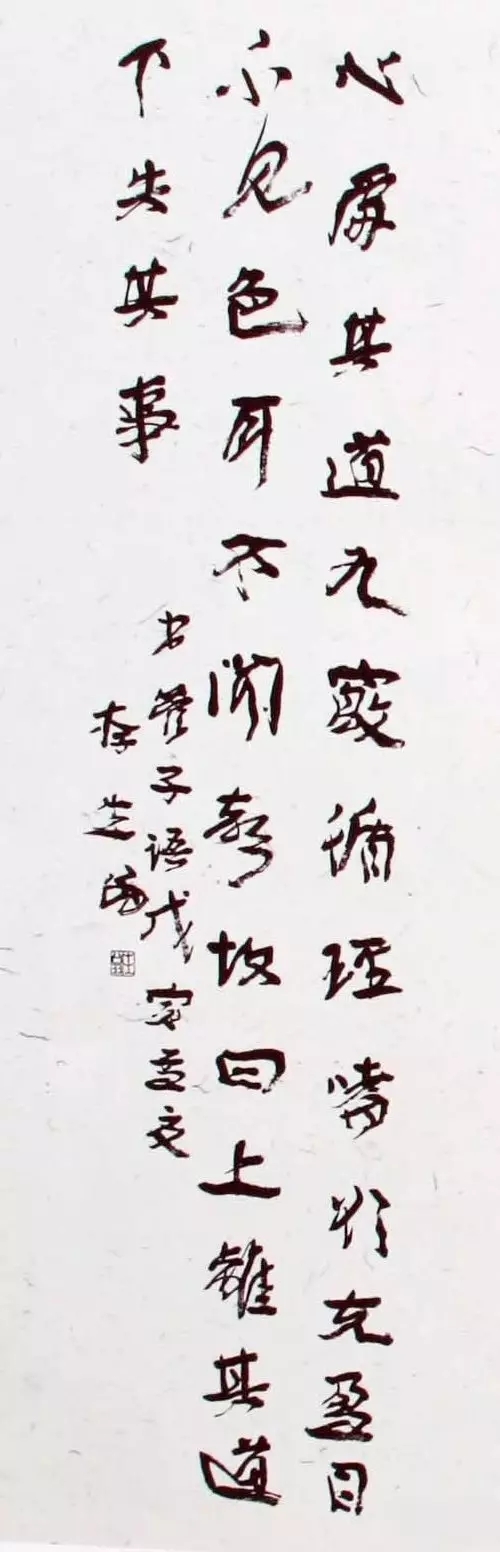 心處其道九竅循理嗜欲充盈目
不見色耳不聞聲故曰上離其道
下失其事
书管子語戊寅夏